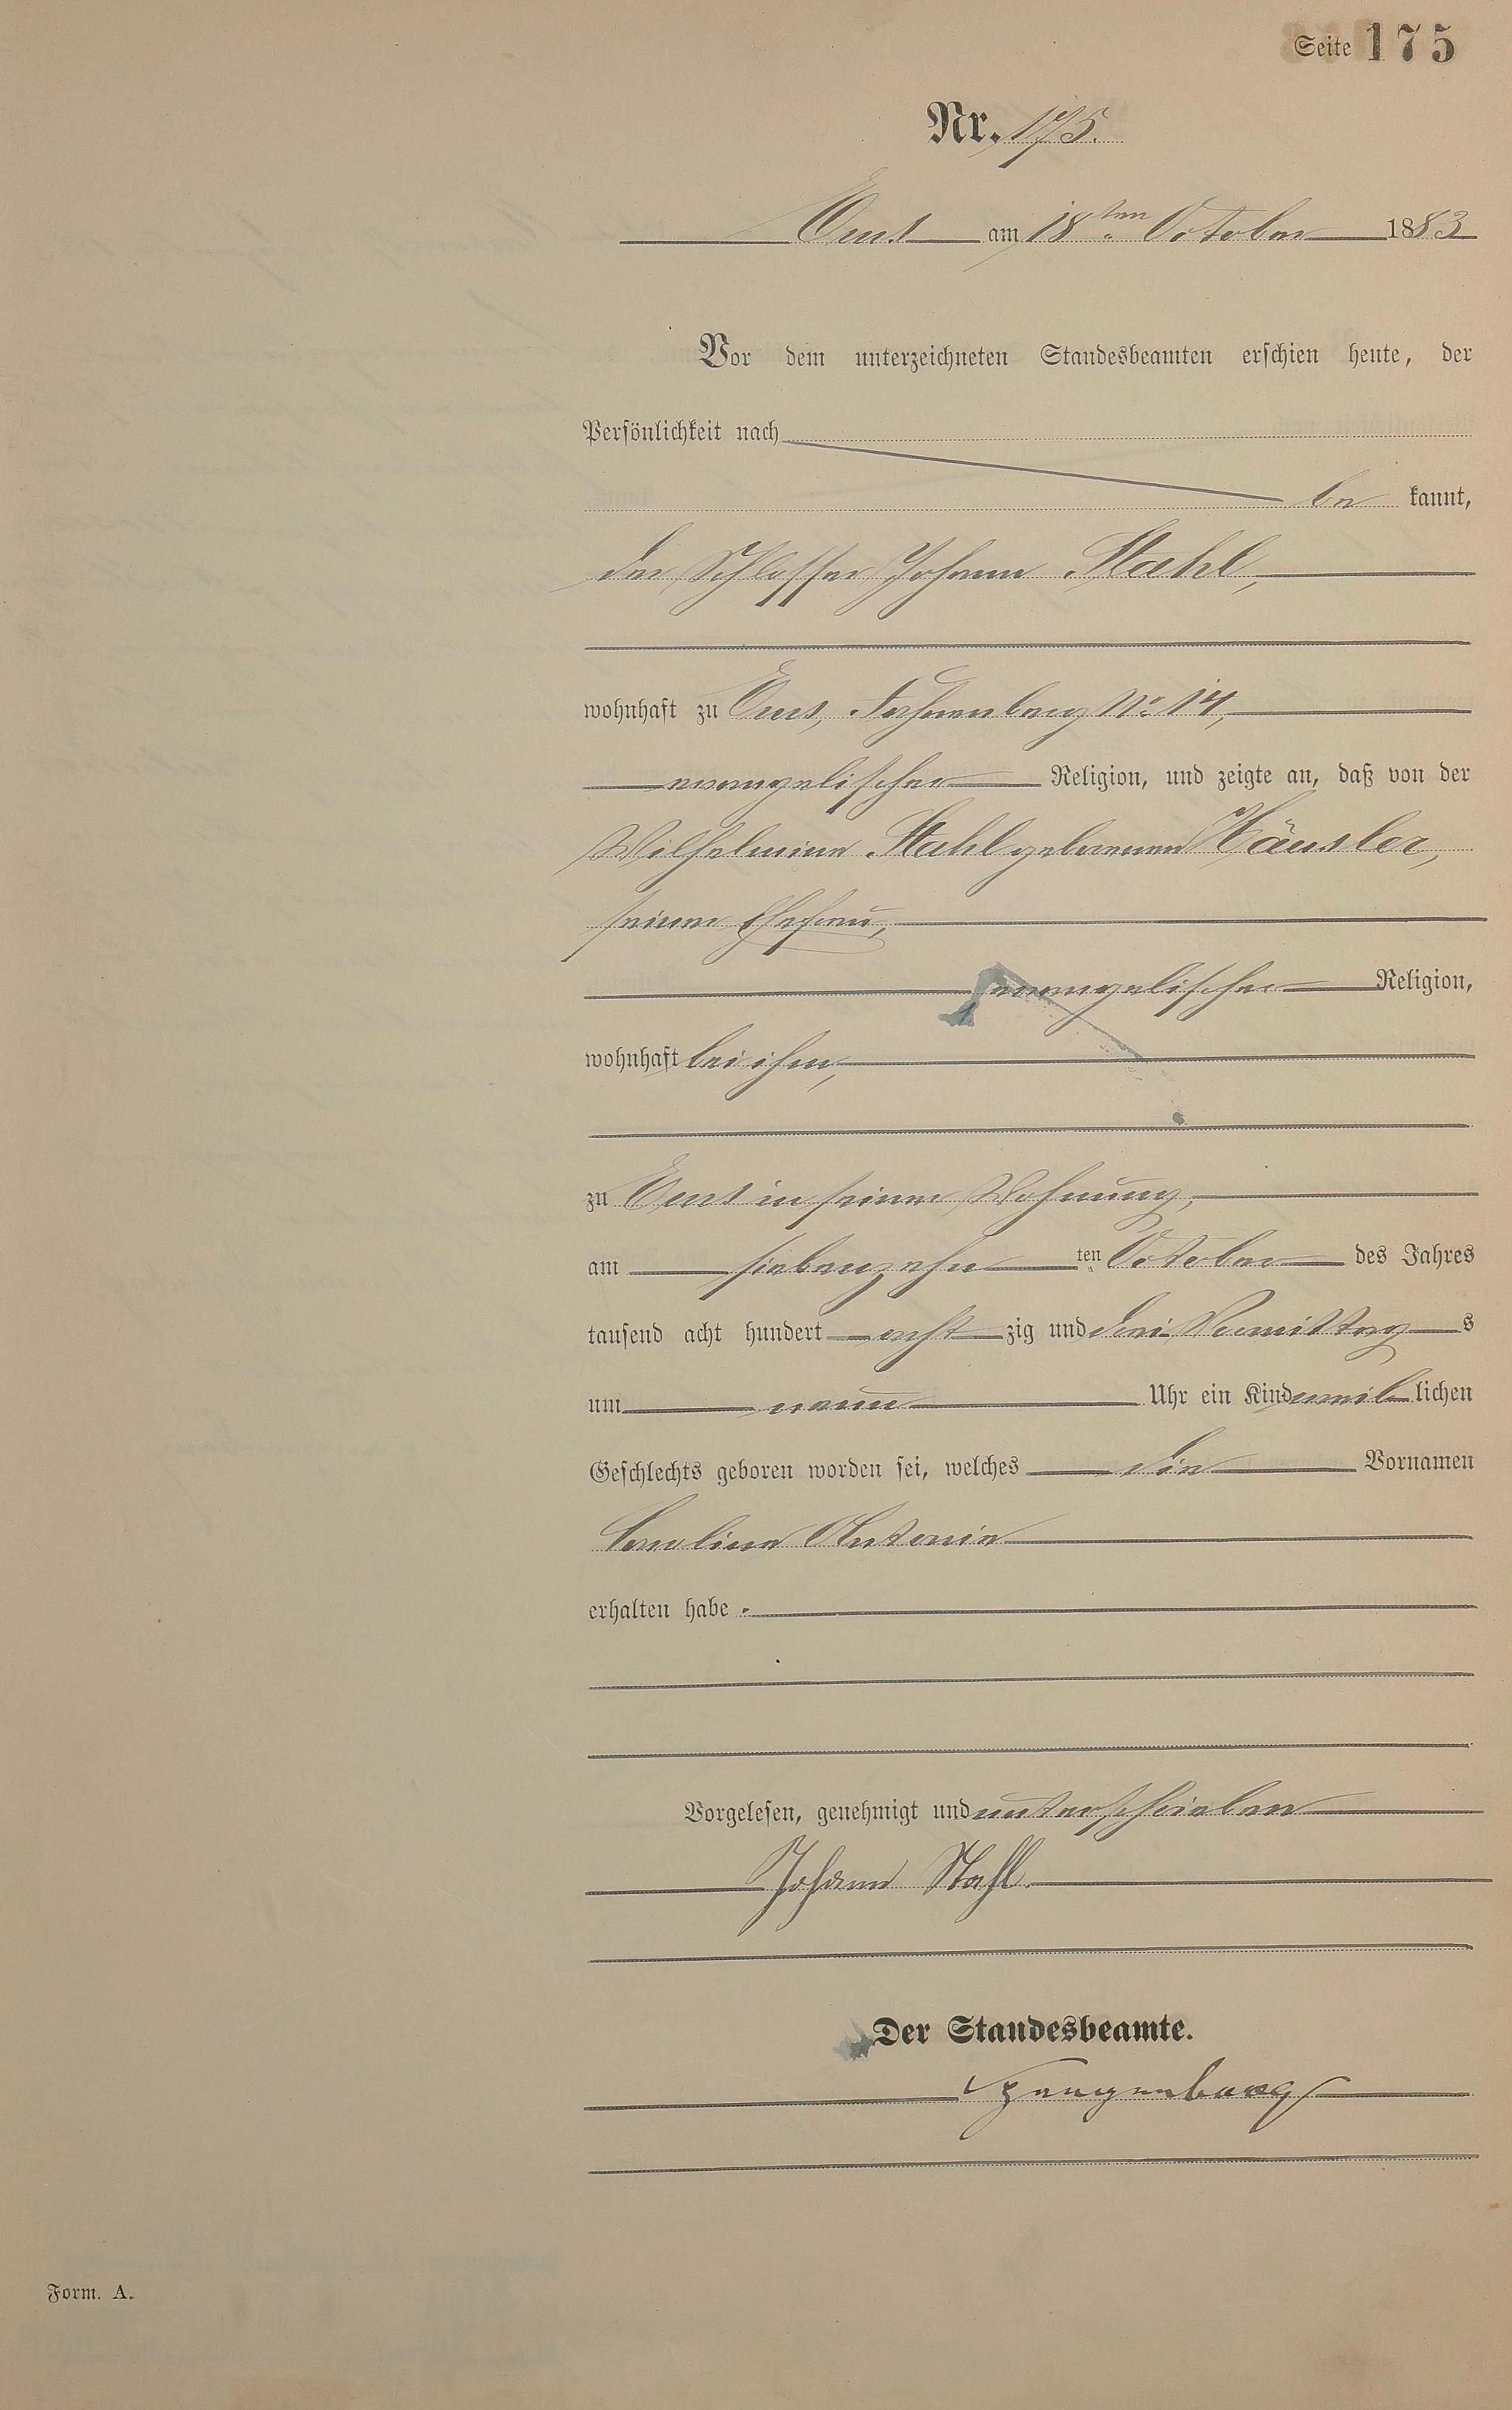 Seite 175
Nr. 175.
Ems am 18ten October 1883
Vor dem unterzeichneten Standesbeamten erschien heute, der
Persönlichkeit nach
be kannt,
der Schlosser Johann Stahl,
wohnhaft zu Ems, No 14,
evangelischer Religion, und zeigte an, daß von der
Wilhelmine Stahl geborenen Häusler,
seiner Ehefrau,
evangelischer Religion,
wohnhaft bei ihm,
zu Ems in seiner Wohnung,
am siebenzehn ten October des Jahres
tausend acht hundert acht zig und drei Vormittag s
um neun Uhr ein Kind weib lichen
Geschlechts geboren worden sei, welches die Vornamen
Caroline Antonie
erhalten habe.
Vorgelesen, genehmigt und unterschrieben
Johann Stahl.
Der Standesbeamte.
Spangenberg
Form. A.